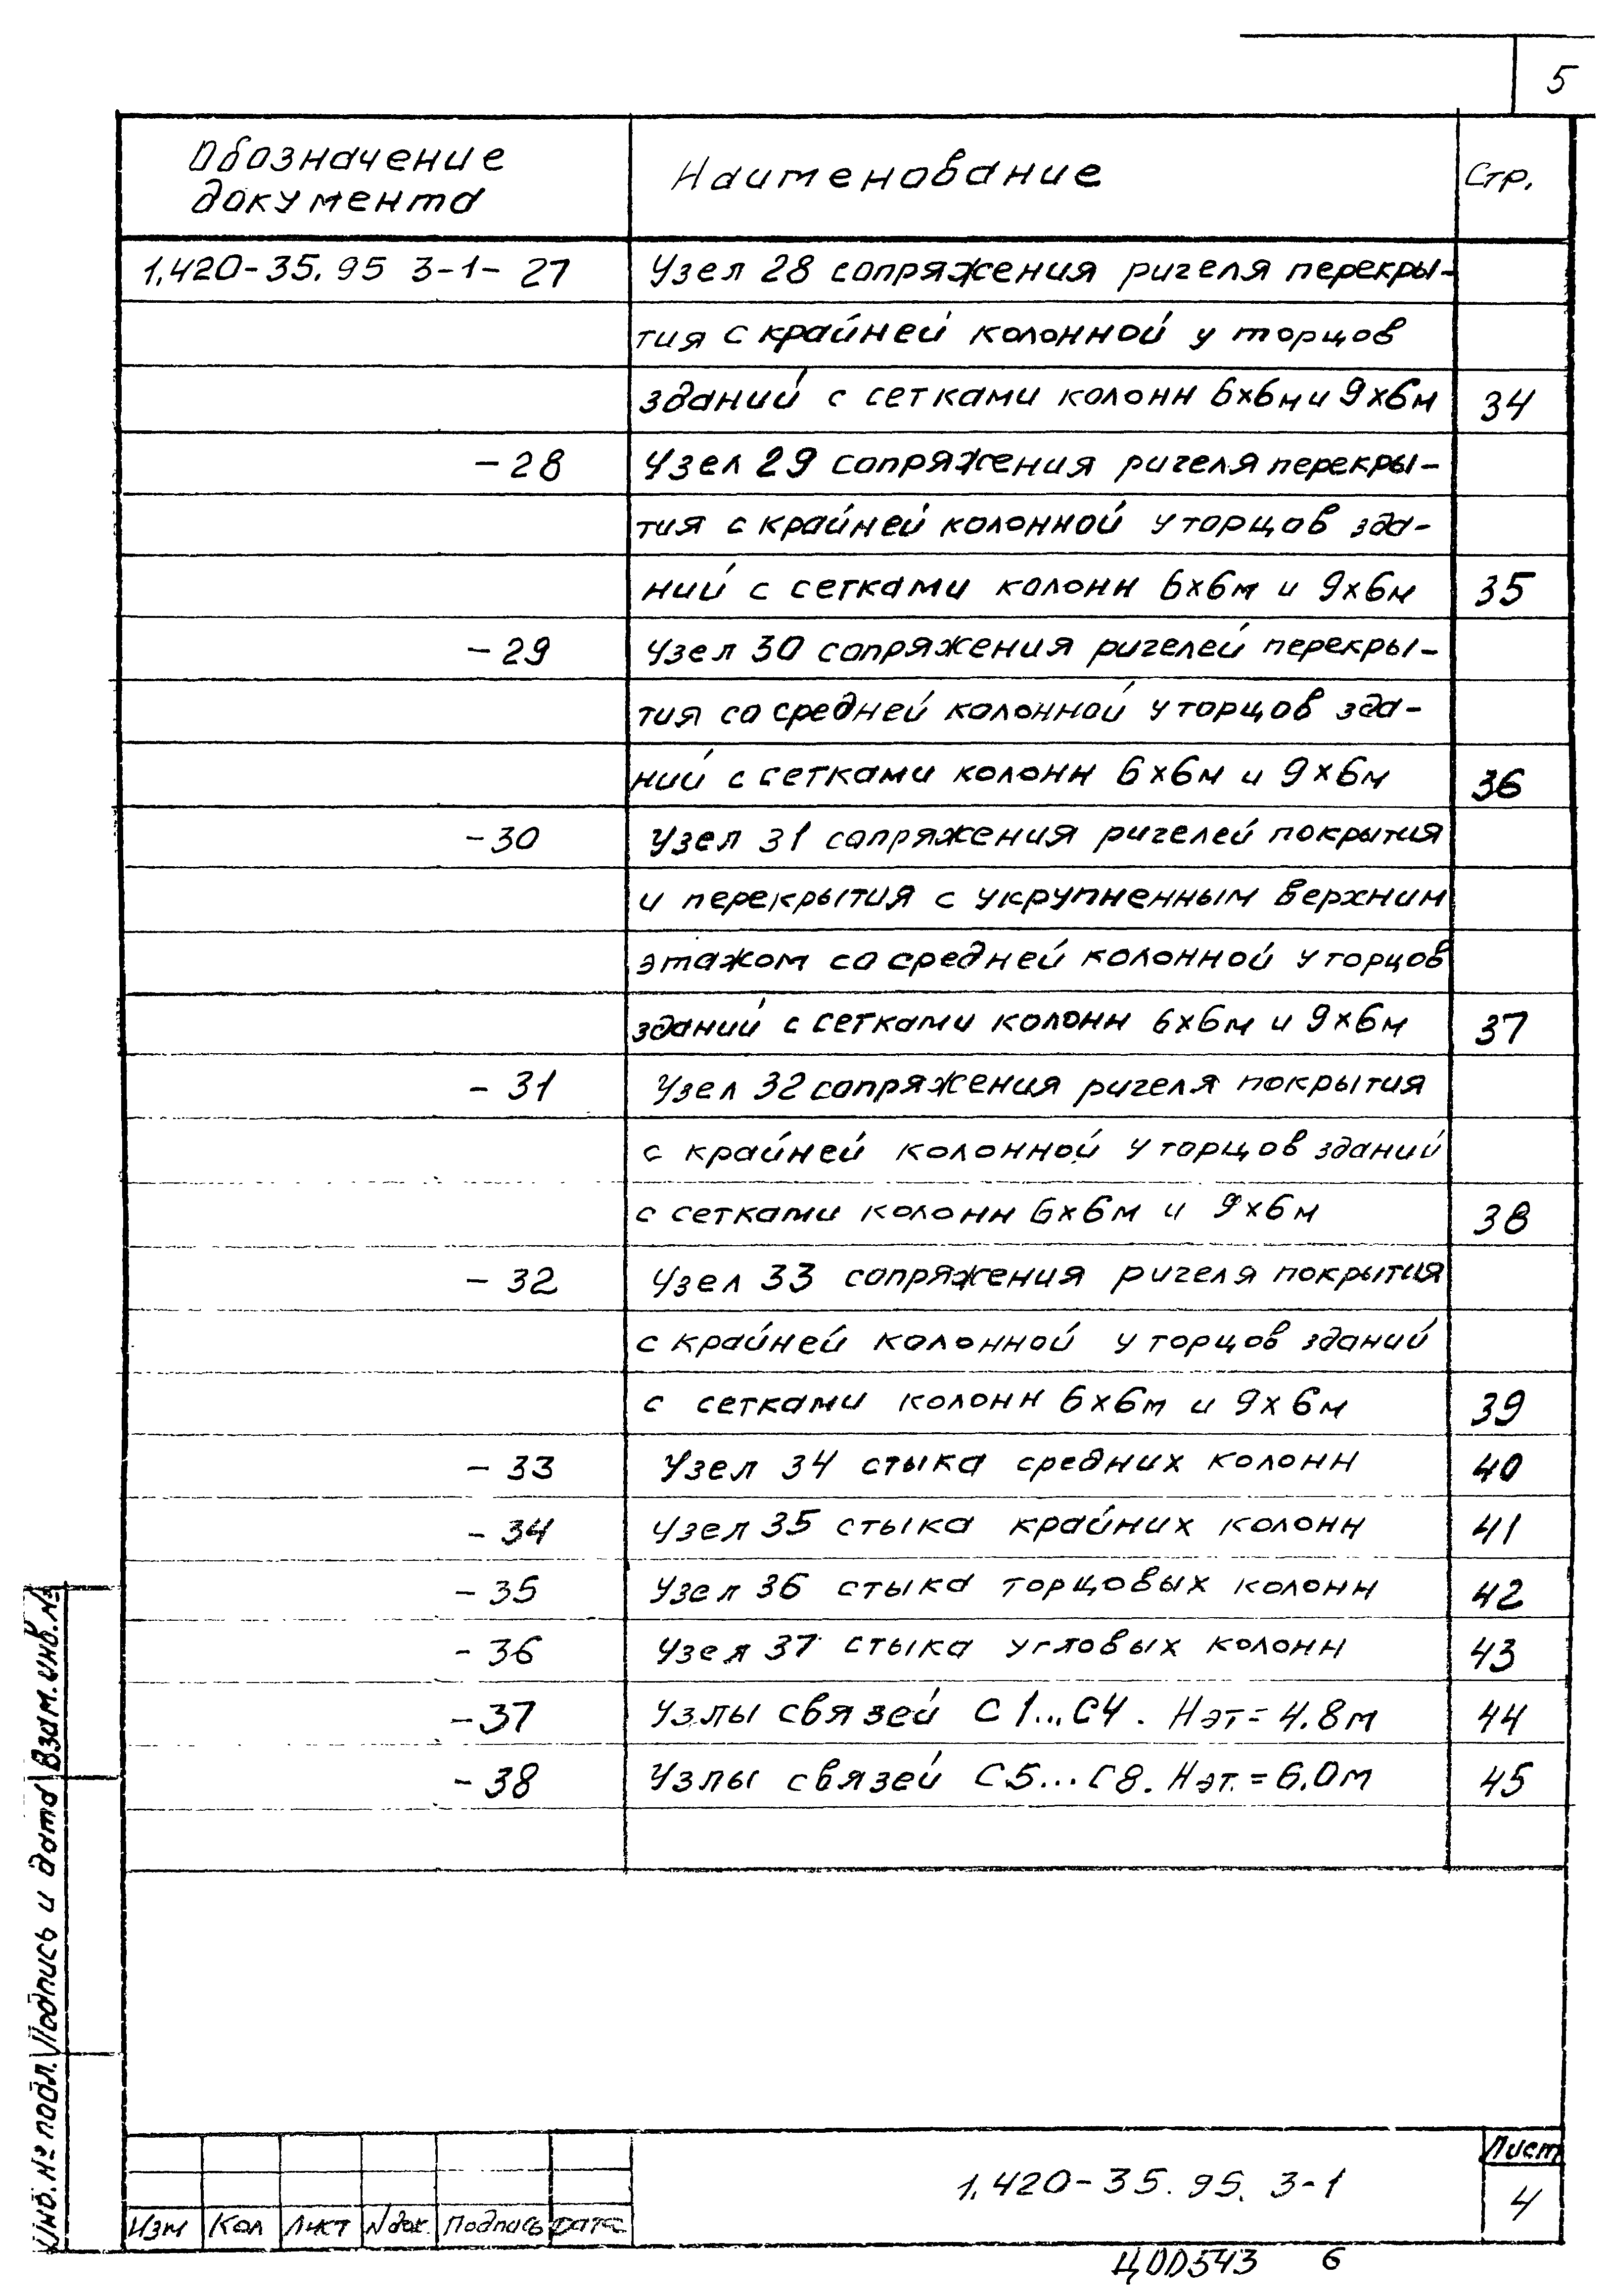 5
Обозначение
документа
Наименование
Стр.
1.420-35.95 3-1-27
Узел 28 сопряжения ригеля перекры-
тия с крайней колонной у торцов
зданий с сетками колонн 6х6м и 9х6м 34
-28 Узел 29 сопряжения ригеля перекры-
тия с крайней колонной у торцов зда-
ний с сетками колонн 6х6м и 9х6м 35
-29 Узел 30 сопряжения ригелей перекры-
тия со средней колонной у торцов зда-
ний с сетками колонн 6х6м и 9х6м 36
-30 Узел 31 сопряжения ригелей покрытия
и перекрытия с укрупненным верхним
этажом со средней колонной у торцов
зданий с сетками колонн 6х6м и 9х6м 37
-31 Узел 32 сопряжения ригеля покрытия
с крайней колонной у торцов зданий
с сетками колонн 6х6м и 9х6м 38
-32 Узел 33 сопряжения ригеля покрытия
с крайней колонной у торцов зданий
с сетками колонн 6х6м и 9х6м 39
-33 Узел 34 стыка средних колонн 40
-34 Узел 35 стыка крайних колонн 41
-35 Узел 36 стыка торцовых колонн 42
-36 Узел 37 стыка угловых колонн 43
-37 Узлы связей С1...С4. Нэт=4.8м 44
-38 Узлы связей С5...С8. Нэт.=6.0м 45
Взам.инв.№
Подпись и дата
Инв.№ подл.
Изм Кол Лист Nдок. Подпись Дата
1.420-35.95. 3-1
Лист
4
Ц00543 6